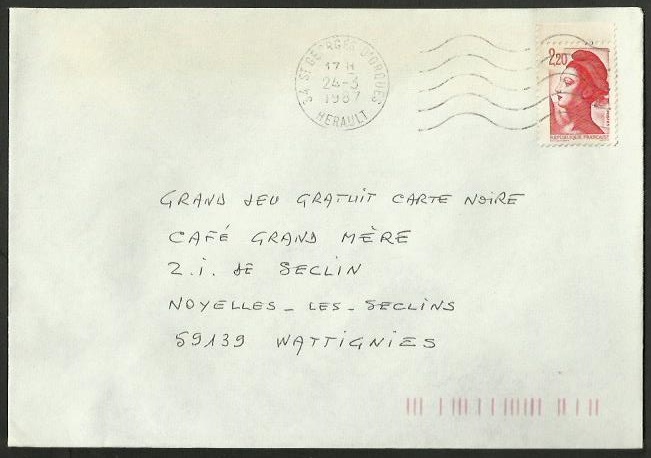 34 ST GEORGES D'ORQUES
17 H
24-3
1987
HERAULT
2,20
REPUBLIQUE FRANÇAISE
GRAND JEU GRATUIT CARTE NOIRE
CAFÉ GRAND MÈRE
Z.i. DE SECLIN
NOYELLES-LES-SECLINS
59139 WATTIGNIES